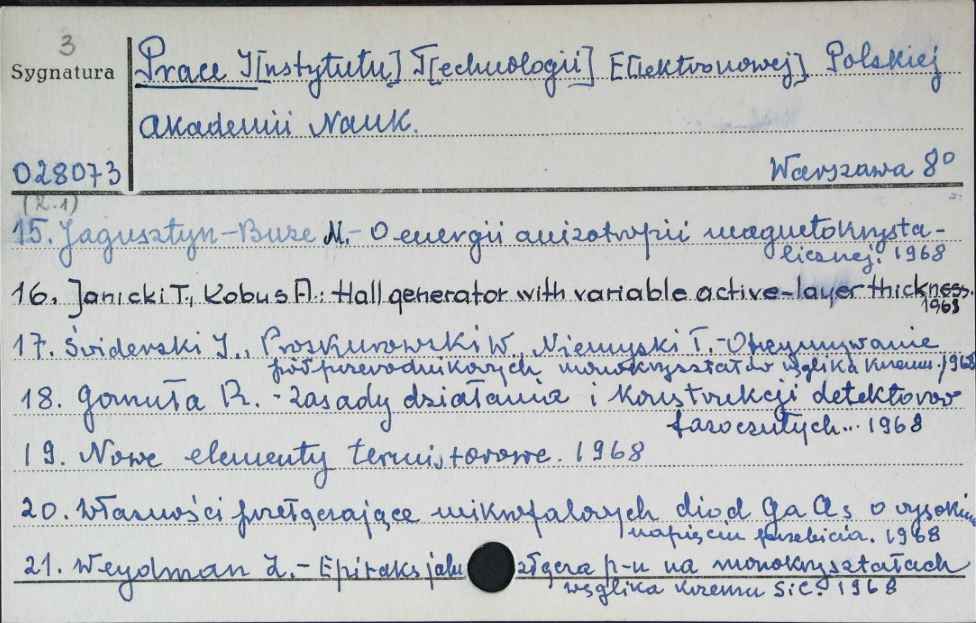 3
Sygnatura
Prace I[nstytutu] T[echnologii] E[lektronowej] Polskiej
Akademii Nauk.
028073
Warszawa 8°
(R.1)
15. Jagusztyn-Buze M.- O energii anizotropii magnetokrysta-
licznej. 1968
16. Janicki T., Kobus A.: Hall generator with variable active-layer thickness.
1968
17. Świderski J., Proskurowski W., Niemyski T.- Otrzymywanie
półprzewodnikowych monokryształów węglika krzemu. 1968
18. Gomuła R. - Zasady działania i konstrukcji detektorów
fazoczułych... 1968
19. Nowe elementy termistorowe. 1968
20. Własności przełączające mikrofalowych diod GaAs o wysokim
napięciu przebicia. 1968
21. Weydman Z.- Epitaksjaln złącza p-n na monokryształach
węglika krzemu SiC. 1968